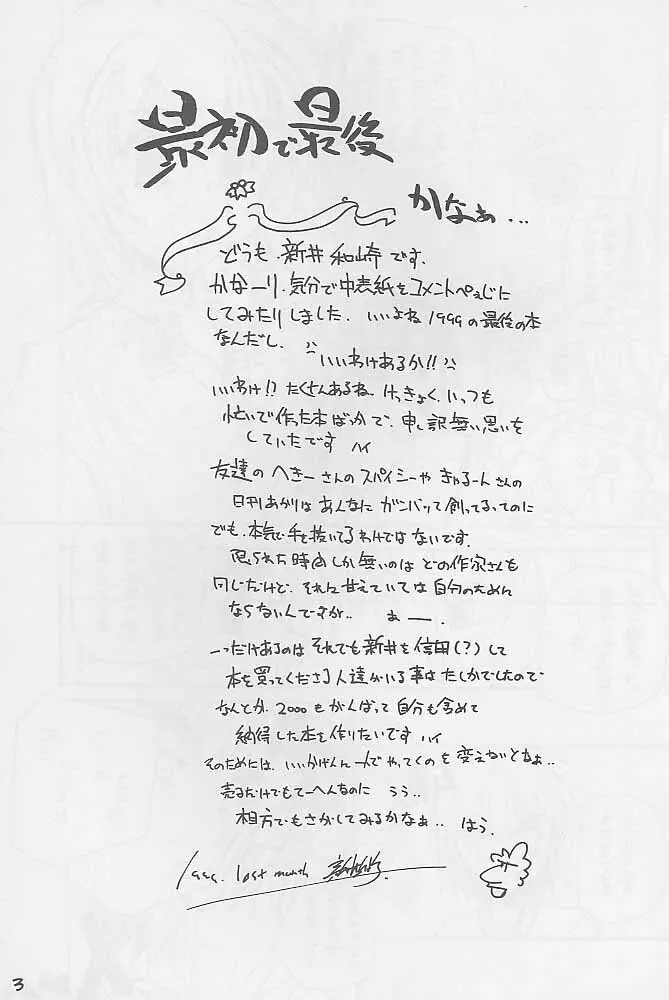 最初で最後
かなぁ...
どうも.新井和崎です.
かなーり.気分で中表紙をコメントぺぇじに
してみたりしました. いいよね1999の最後の本
なんだし.
いいわけあるか!!
いいわけ!? たくさんあるね. けっきょく.いっつも
忙いで作った本ばっかで.申し訳無い思いを
していたです ハイ
友達のへきーさんのスパイシーや きゃるーんさんの
日刊あがりはあんなにガンバッて創ってるってのに
でも.本気で手を抜いてるわけではないです.
限られた時間しか無いのはどの作家さんも
同じだけど.それに甘えていては自分のために
ならないんですが.. ぁー.
一つだけあるのはそれでも新井を信用(?)して
本を買ってくださる人達がいる事はたしかでしたので
なんとか.2000もがんばって自分も含めて
納得した本を作りたいです ハイ
そのためには.いいかげん一人でやってくのを変えないとなぁ..
売るだけでもてーへんなのに うぅ..
相方でもさがしてみるかなぁ.. はう.
1999. last month
3